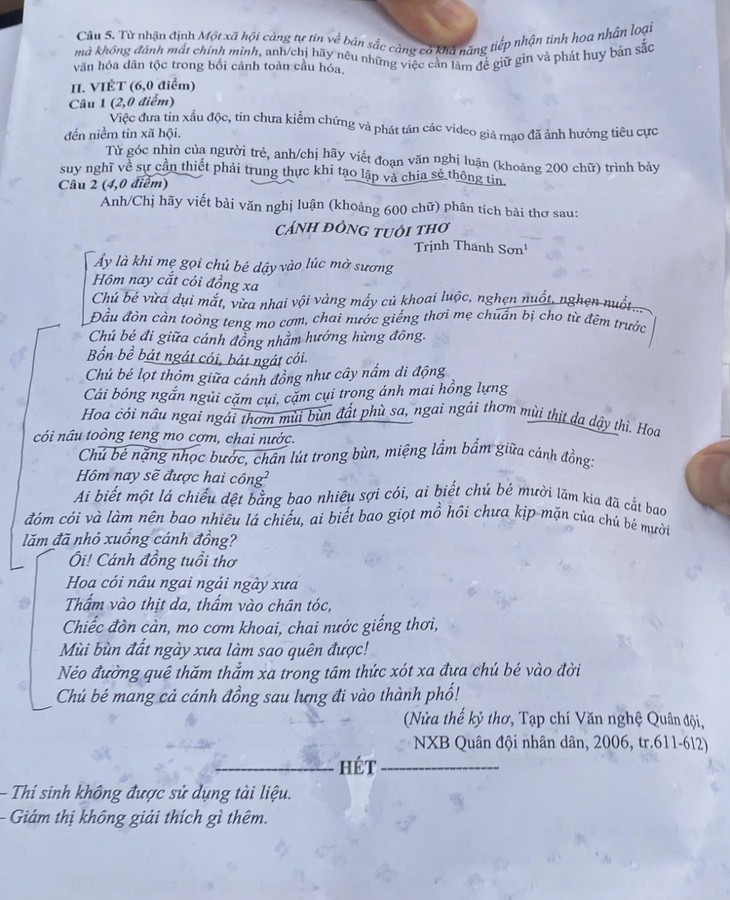 Câu 5. Từ nhận định Một xã hội càng tự tin về bản sắc càng có khả năng tiếp nhận tinh hoa nhân loại
mà không đánh mất chính mình, anh/chị hãy nêu những việc cần làm để giữ gìn và phát huy bản sắc
văn hóa dân tộc trong bối cảnh toàn cầu hóa.
II. VIẾT (6,0 điểm)
Câu 1 (2,0 điểm)
Việc đưa tin xấu độc, tin chưa kiểm chứng và phát tán các video giả mạo đã ảnh hưởng tiêu cực
đến niềm tin xã hội.
Từ góc nhìn của người trẻ, anh/chị hãy viết đoạn văn nghị luận (khoảng 200 chữ) trình bày
suy nghĩ về sự cần thiết phải trung thực khi tạo lập và chia sẻ thông tin.
Câu 2 (4,0 điểm)
Anh/Chị hãy viết bài văn nghị luận (khoảng 600 chữ) phân tích bài thơ sau:
CÁNH ĐỒNG TUỔI THƠ
Trịnh Thanh Sơn¹
Ấy là khi mẹ gọi chú bé dậy vào lúc mờ sương
Hôm nay cắt cói đồng xa
Chú bé vừa dụi mắt, vừa nhai vội vàng mấy củ khoai luộc, nghẹn nuốt, nghẹn nuốt...
Đầu đòn càn toòng teng mo cơm, chai nước giếng thơi mẹ chuẩn bị cho từ đêm trước
Chú bé đi giữa cánh đồng nhằm hướng hừng đông.
Bốn bề bát ngát cói, bát ngát cói.
Chú bé lọt thỏm giữa cánh đồng như cây nấm di động
Cái bóng ngắn ngủi cặm cụi, cặm cụi trong ánh mai hồng lựng
Hoa cói nâu ngai ngái thơm mùi bùn đất phù sa, ngai ngái thơm mùi thịt da dậy thì. Hoa
cói nâu toòng teng mo cơm, chai nước.
Chú bé nặng nhọc bước, chân lút trong bùn, miệng lẩm bẩm giữa cánh đồng:
Hôm nay sẽ được hai công²
Ai biết một lá chiếu dệt bằng bao nhiêu sợi cói, ai biết chú bé mười lăm kia đã cắt bao
đóm cói và làm nên bao nhiêu lá chiếu, ai biết bao giọt mồ hôi chưa kịp mặn của chú bé mười
lăm đã nhỏ xuống cánh đồng?
Ôi! Cánh đồng tuổi thơ
Hoa cói nâu ngai ngái ngày xưa
Thấm vào thịt da, thấm vào chân tóc,
Chiếc đòn càn, mo cơm khoai, chai nước giếng thơi,
Mùi bùn đất ngày xưa làm sao quên được!
Nẻo đường quê thăm thẳm xa trong tâm thức xót xa đưa chú bé vào đời
Chú bé mang cả cánh đồng sau lưng đi vào thành phố!
(Nửa thế kỷ thơ, Tạp chí Văn nghệ Quân đội,
NXB Quân đội nhân dân, 2006, tr.611-612)
HẾT
- Thí sinh không được sử dụng tài liệu.
- Giám thị không giải thích gì thêm.